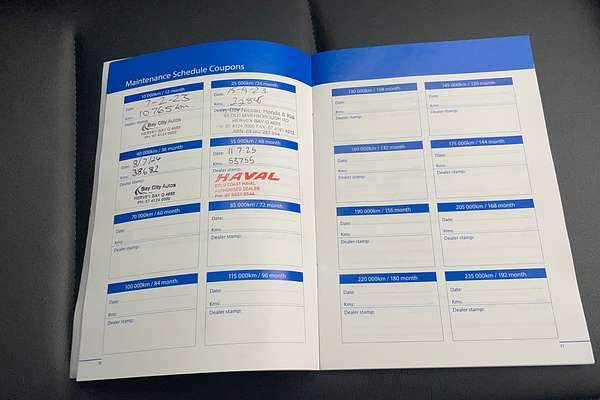 Maintenance Schedule Coupons
10 000km / 12 month
Date: 7-2-23
Kms: 10765km
Dealer stamp:
Bay City Autos
HERVEY BAY Q 4655
PH: 07 4124 0000
25 000km / 24 month
Date: 15-9-23
Kms:
Dealer stamp:
Bay City Nissan, Honda & Kia
HERVEY BAY Q 4655
40 000km / 36 month
Date: 8/7/24
Kms: 38682
Dealer stamp:
Bay City Autos
HERVEY BAY Q 4655
PH: 07 4124 0000
55 000km / 48 month
Date: 11.7.25
Kms: 53755
Dealer stamp:
HAVAL
GOLD COAST HAVAL
AUTHORISED DEALER
70 000km / 60 month
Date:
Kms:
Dealer stamp:
85 000km / 72 month
Date:
Kms:
Dealer stamp:
100 000km / 84 month
Date:
Kms:
Dealer stamp:
115 000km / 96 month
Date:
Kms:
Dealer stamp:
130 000km / 108 month
Date:
Kms:
Dealer stamp:
145 000km / 120 month
Date:
Kms:
Dealer stamp:
160 000km / 132 month
Date:
Kms:
Dealer stamp:
175 000km / 144 month
Date:
Kms:
Dealer stamp:
190 000km / 156 month
Date:
Kms:
Dealer stamp:
205 000km / 168 month
Date:
Kms:
Dealer stamp:
220 000km / 180 month
Date:
Kms:
Dealer stamp:
235 000km / 192 month
Date:
Kms:
Dealer stamp: